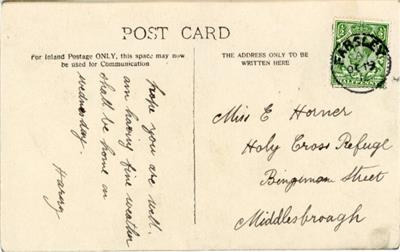 POST CARD
For Inland Postage ONLY, this space may now
be used for Communication
THE ADDRESS ONLY TO BE
WRITTEN HERE
FARSLEY
hope you are well.
am having fine weather
shall be home on
wednesday.
Harry
Miss E Horner
Holy Cross Refuge
Street
Middlesbroagh